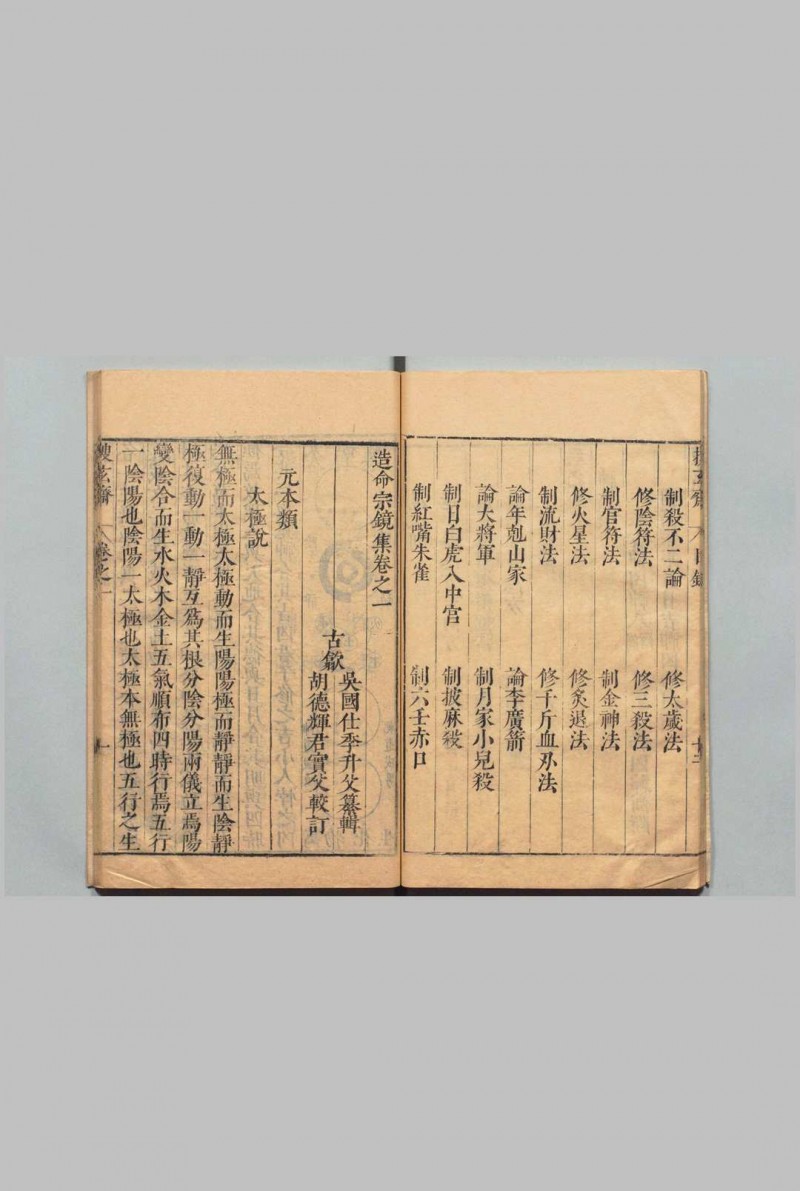 搜玄齋 目錄 十二
制殺不二論 修太歲法
修陰符法 修三殺法
制官符法 制金神法
修火星法 修炙退法
制流財法 修千斤血刃法
論年剋山家 論李廣箭
論大將軍 制月家小兒殺
制日白虎入中宮 制披麻殺
制紅嘴朱雀 制六壬赤口
造命宗鏡集卷之一
吳國仕季升父纂輯
古歙
胡德輝君實父較訂
元本類
太極說
無極而太極太極動而生陽陽極而靜靜而生陰靜
極復動一動一靜互爲其根分陰分陽兩儀立焉陽
變陰合而生水火木金土五氣順布四時行焉五行
一陰陽也陰陽一太極也太極本無極也五行之生
搜玄齋 卷之一 一